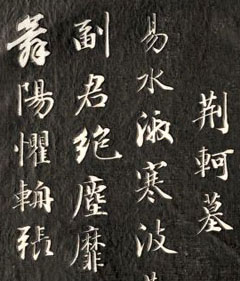 荆軻墓
易水寒波
副君絶塵靡
舞陽懼輈張